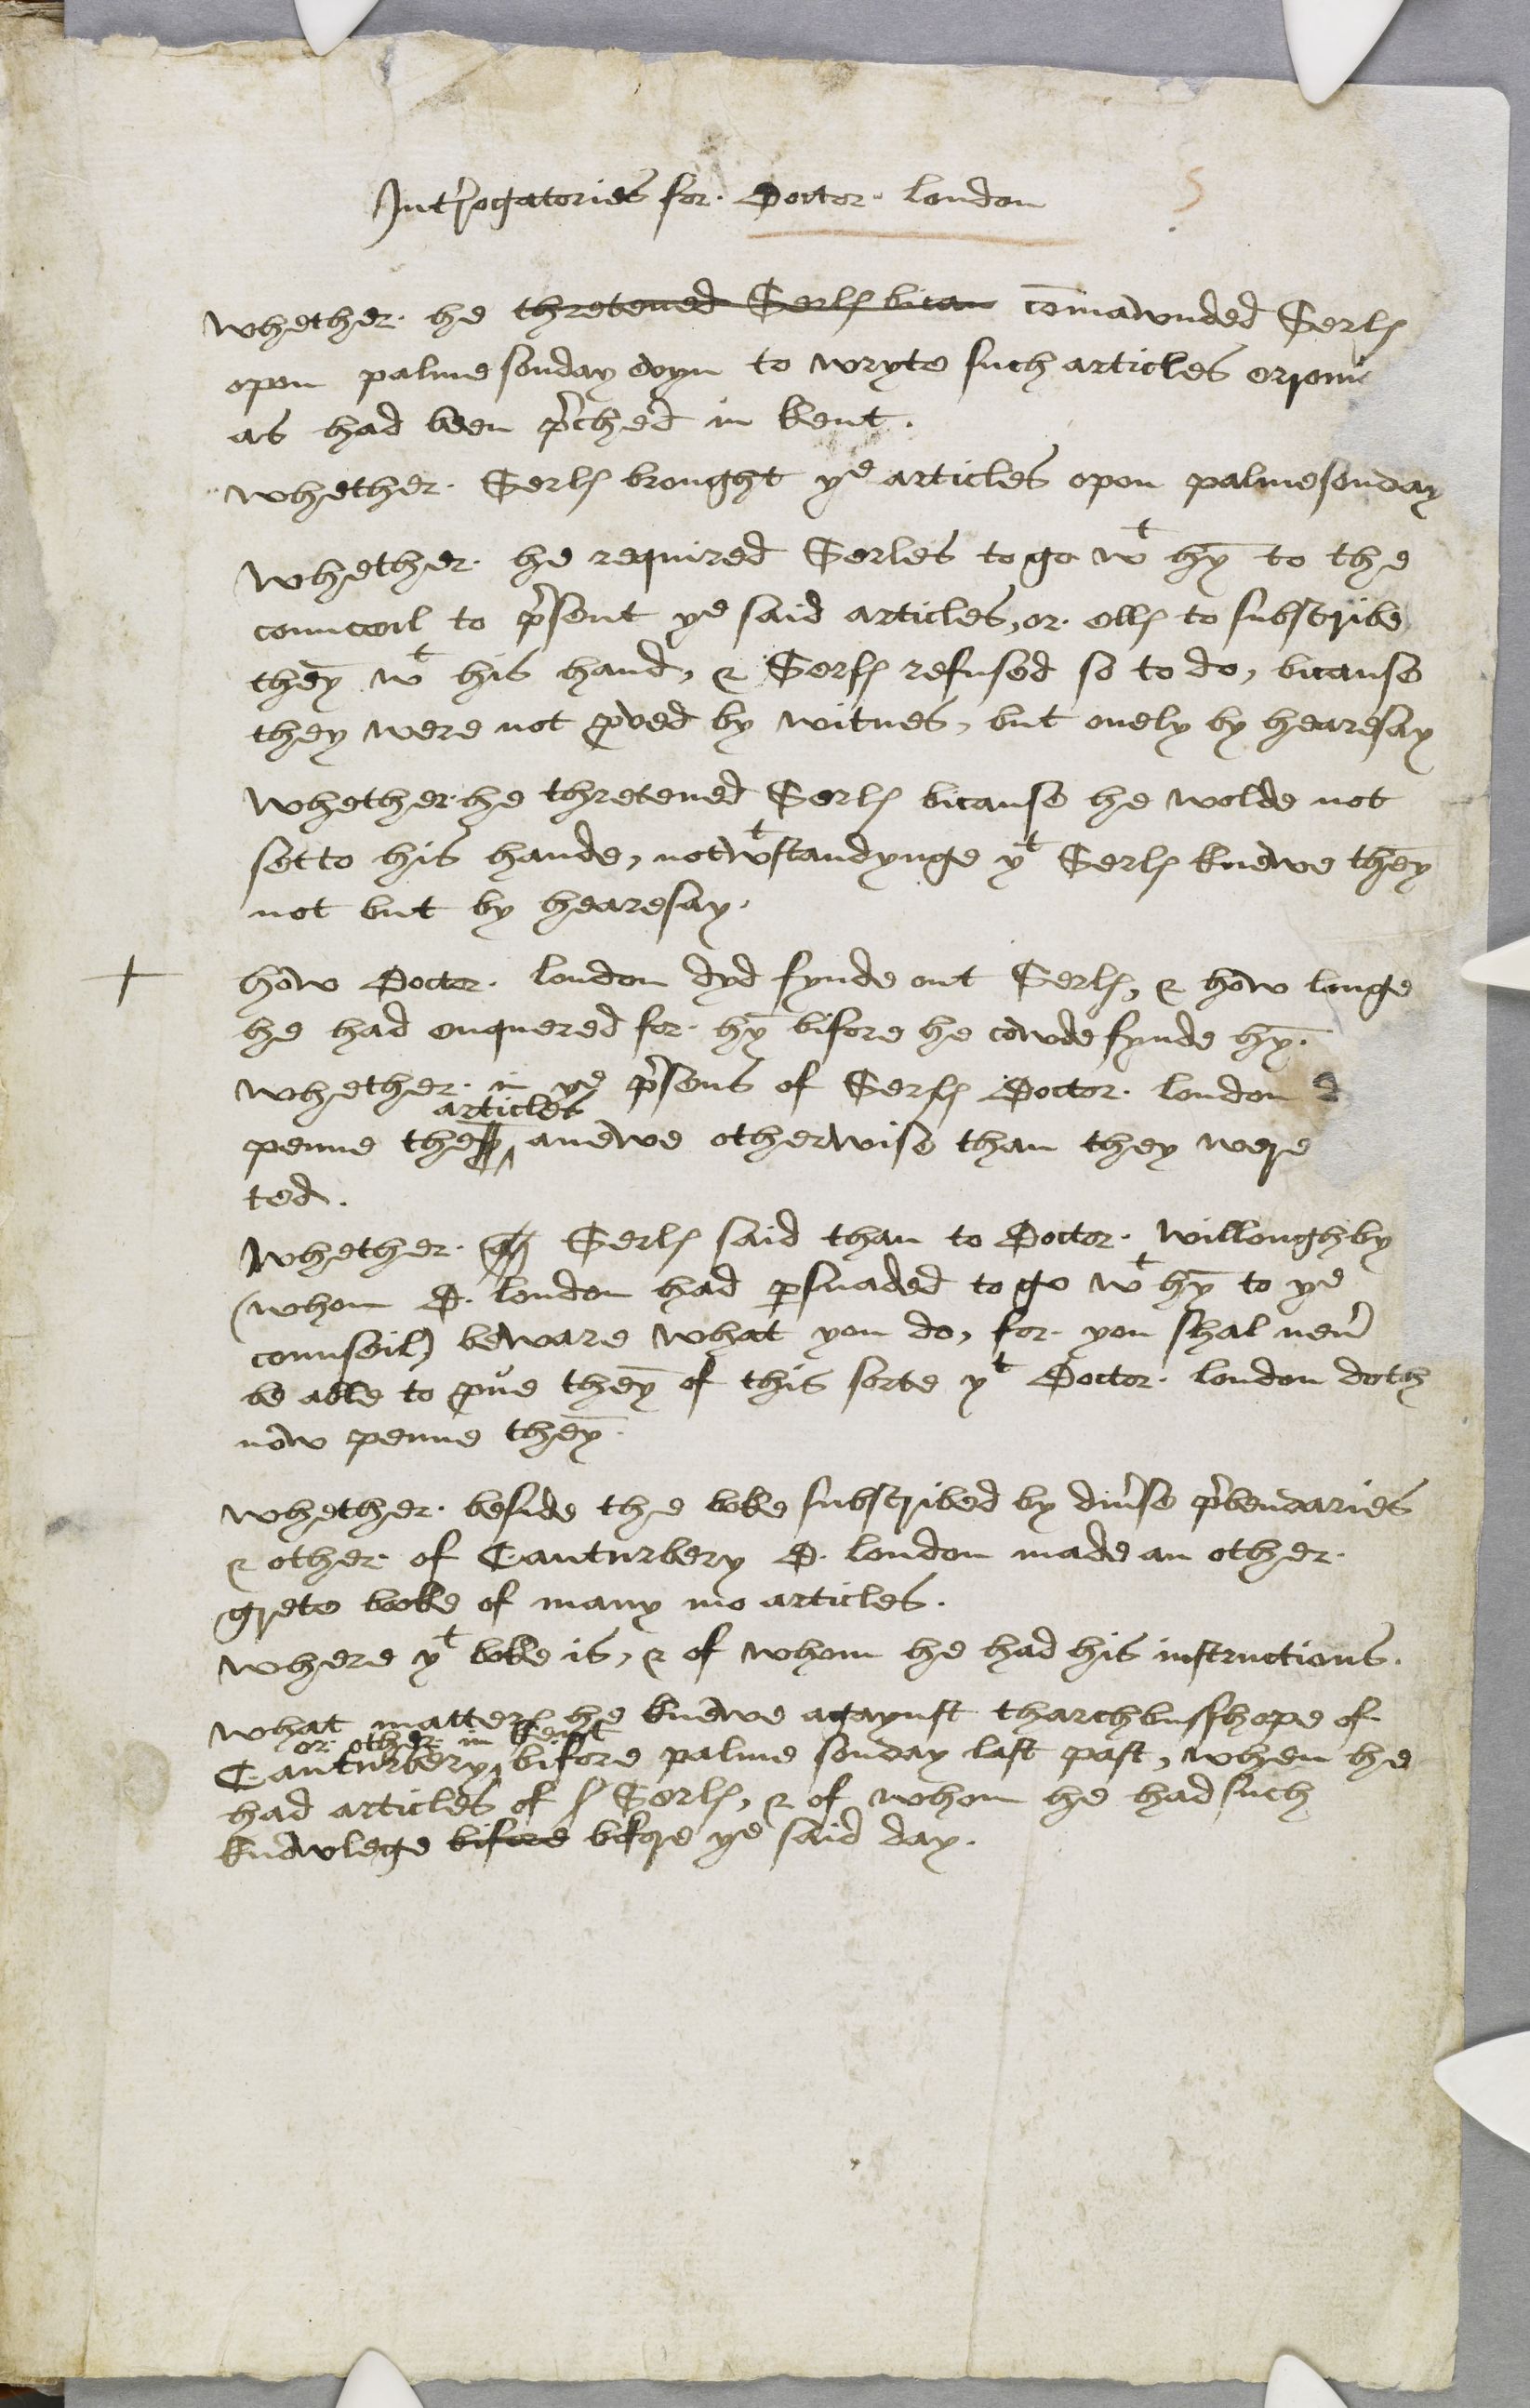 Int'rogatories for Doctor london 5
Whether he thretened Serls bicau co̅mawnded Serls
opon palme sonday evyn to wryte such articles
as had been p'ched in kent.
Whether Serls brought yᵉ articles opon palmesonday
Whether he required Serles to go wᵗ hy̅ to the
counceil to p'sent yᵉ said articles, or ells to subscribe
they̅ wᵗ his hand, & Serls refused so to do, bicause
they were not ꝓved by witnes, but onely by hearesay
Whether he thretened Serls bicause he wolde not
set to his hande, notwᵗstandynge yᵗ Serls knewe they̅
not but by hearesay.
+ how Doctor london dyd fynde out Serls, & how longe
he had enquered for hy̅ bifore he cowde fynde hy̅.
Whether in yᵉ p'sens of Serls Doctor london
articles
penne the anewe otherwise than they were
ted.
Whether Serls said than to Doctor Willoughby
(whom D. london had ꝑsuaded to go wᵗ hy̅ to yᵉ
counseil) beware what you do, for you shal nev'
be able to ꝓve they̅ of this sorte yᵗ Doctor london doth
now penne they̅.
Whether beside the boke subscribed by div'se p'bendaries
& other of Canturbery D. london made an other
grete booke of many mo articles.
Where yᵗ boke is, & of whom he had his instructions.
What matters he knewe agaynst tharchbusshope of
or other in kent
Canturbery, bifore palme sonday last past, when he
had articles of Serls, & of whom he had such
knowlege bifore bifore yᵉ said day.